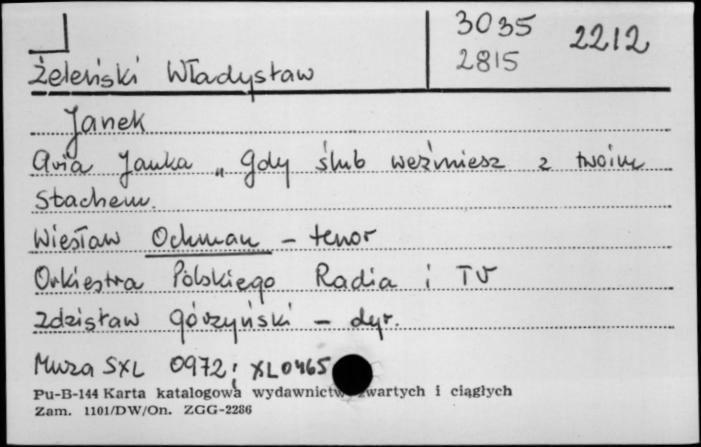 3035 2212
2815
Żeleński Władysław
Janek
Aria Janka „Gdy ślub weźmiesz z twoim
Stachem.
Wiesław Ochman – tenor
Orkiestra Polskiego Radia i TV
Zdzisław Górzyński – dyr.
Muza SXL 0972; XL0465
Pu-B-144 Karta katalogowa wydawnictw zwartych i ciągłych
Zam. 1101/DW/On. ZGG-2286